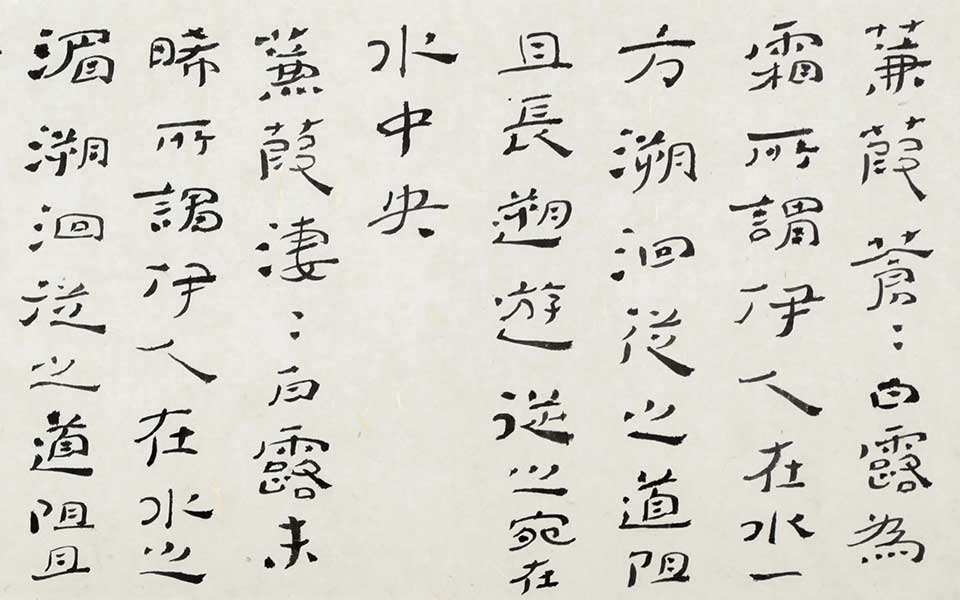 蒹葭蒼〻白露為
霜所謂伊人在水一
方溯洄從之道阻
且長遡遊從之宛在
水中央
蒹葭淒〻白露未
晞所謂伊人在水之
湄溯洄從之道阻且